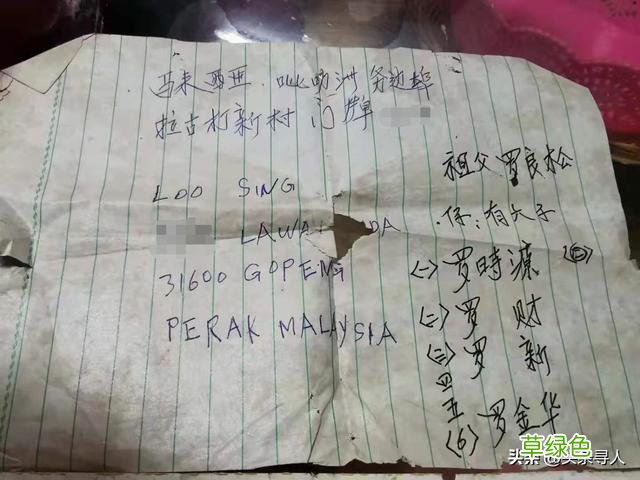 马来西亚 吡叻洲 务边埠
拉古打新村 门牌
LOO SING
LAWA DA
31600 GOPENG
PERAK MALAYSIA
祖父罗良松
有六子
(一) 罗時源
(二) 罗 财
(三) 罗 新
四
五
(6) 罗金华
草绿色
头条 @头条寻人